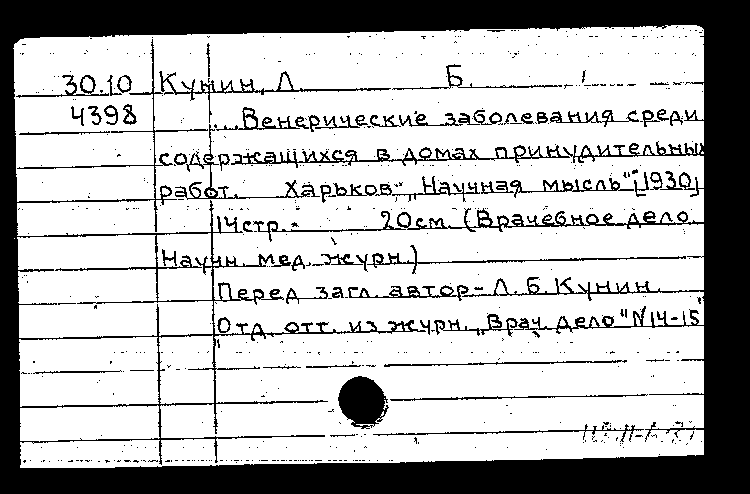 30.10 Кунин, Л. Б.
4398 ...Венерические заболевания среди
содержащихся в домах принудительных
работ. Харьков, "Научная мысль", [1930]
14 стр. 20 см. (Врачебное дело.
Научн. мед. журн.)
Перед загл. автор - Л. Б. Кунин.
Отд. отт. из журн. "Врач. дело" N 14-15